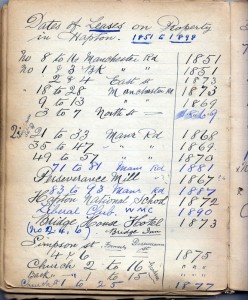 Dates of Leases on Property
in Hapton. 1851 to 1898
No 8 to 16 Manchester Rd 1851
No 1 & 3 Bk " " 1851
" 2 & 4 East St 1873
" 18 to 28 Manchester Rd 1873
" 9 to 13 " " 1869
" 3 to 7 North St 1869
21 to 33 Manr Rd 1868
35 to 47 " " 1869
49 to 57 " " 1870
71 to 81 Manr Rd 1881
Perseverance Mill 1867
83 to 93 Manr Rd 1887
Hapton National School 1872
Liberal Club WMC 1890
Bridge House Hotel 1873
No 2, 4, 6 Bridge Inn
Simpson St
4 & 6 " 1875
Church 2 to 16
Back " 1 to 15 "
Church 1 to 25 1877